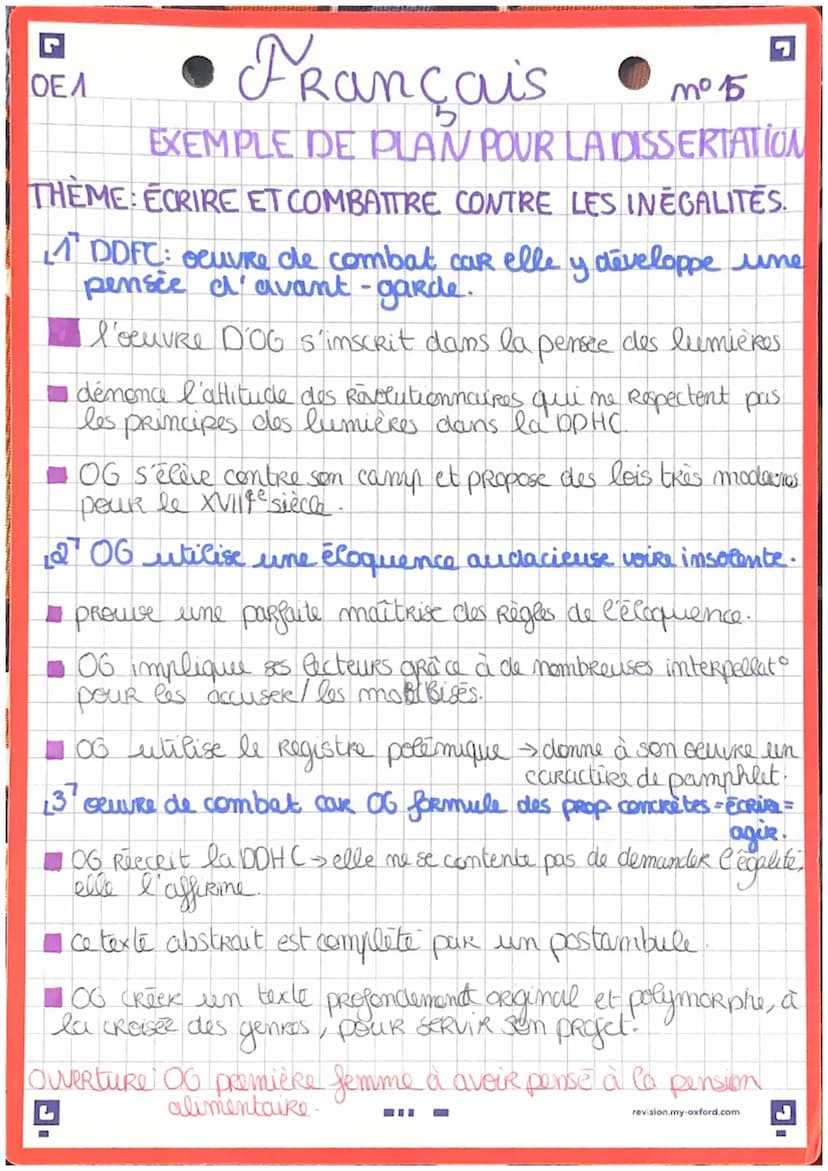 OE1 Français n° 15
EXEMPLE DE PLAN POUR LA DISSERTATION
THÈME: ÉCRIRE ET COMBATTRE CONTRE LES INÉGALITÉS.
1 DDFC: oeuvre de combat car elle y développe une
pensée d'avant-garde.
l'oeuvre D'OG s'inscrit dans la pensée des lumières
dénonce l'attitude des Révolutionnaires qui ne Respectent pas
les principes des lumières dans la DDHC.
OG s'élève contre son camp et propose des lois très modernes
pour le XVIIIe siècle.
2 OG utilise une éloquence audacieuse voire insolente.
preuve une parfaite maîtrise des Règles de l'éloquence.
OG implique ses lecteurs grâce à de nombreuses interpellat°
pour les accuser/les mobilisés.
OG utilise le registre polémique → donne à son oeuvre un
caractère de pamphlet.
3 oeuvre de combat car OG formule des prop concrètes = Écrire =
agir.
OG Réécrit la DDHC → elle ne se contente pas de demander l'égalité,
elle l'affirme.
ce texte abstrait est complété par un postambule.
OG créer un texte profondément original et polymorphe, à
la croisée des genres, pour servir son projet.
OUVERTURE: OG première femme à avoir pensé à la pension
alimentaire.
revision.my-oxford.com